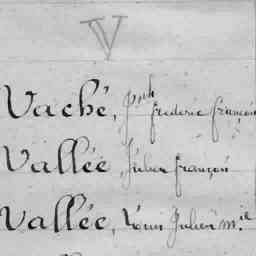 V
Vaché, Jph frederic françois
Vallée, Julien françois
Vallée, Louis Julien m.ie